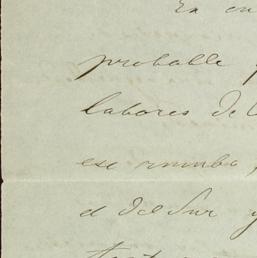 Es en
probable
labores de l
ese rumbo,
el del Sur y